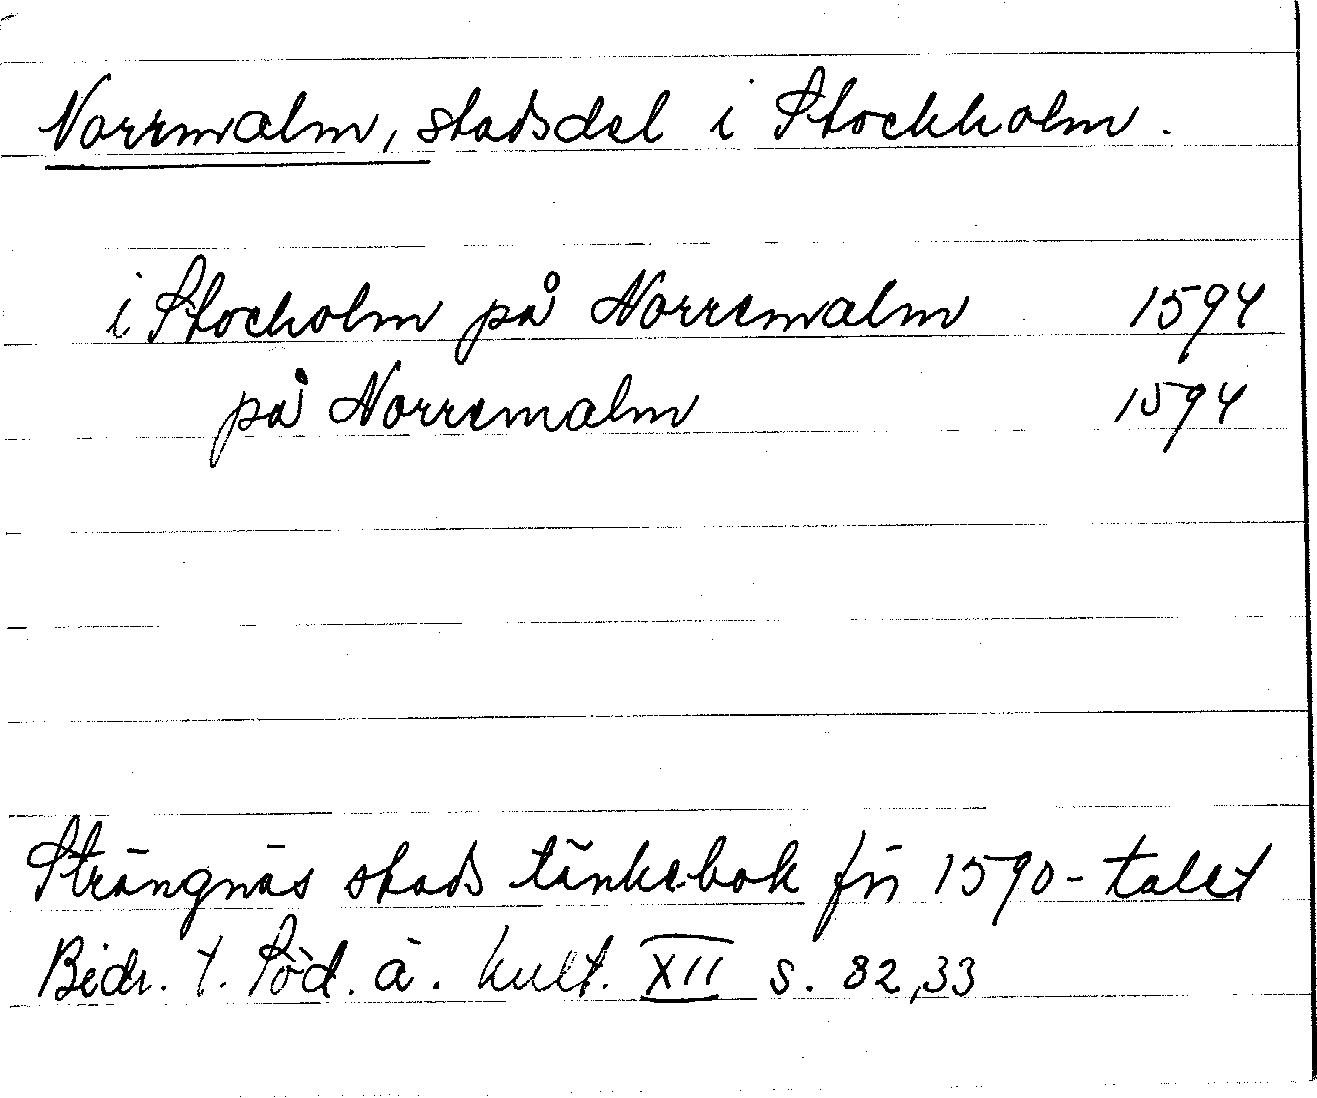 Norrmalm, stadsdel i Stockholm.
i Stocholm på Norremalm 1594
på Norremalm 1594
Strängnäs stads tänkebok för 1590-talet
Bidr. t. Söd. ä. kult. XII s. 82,33